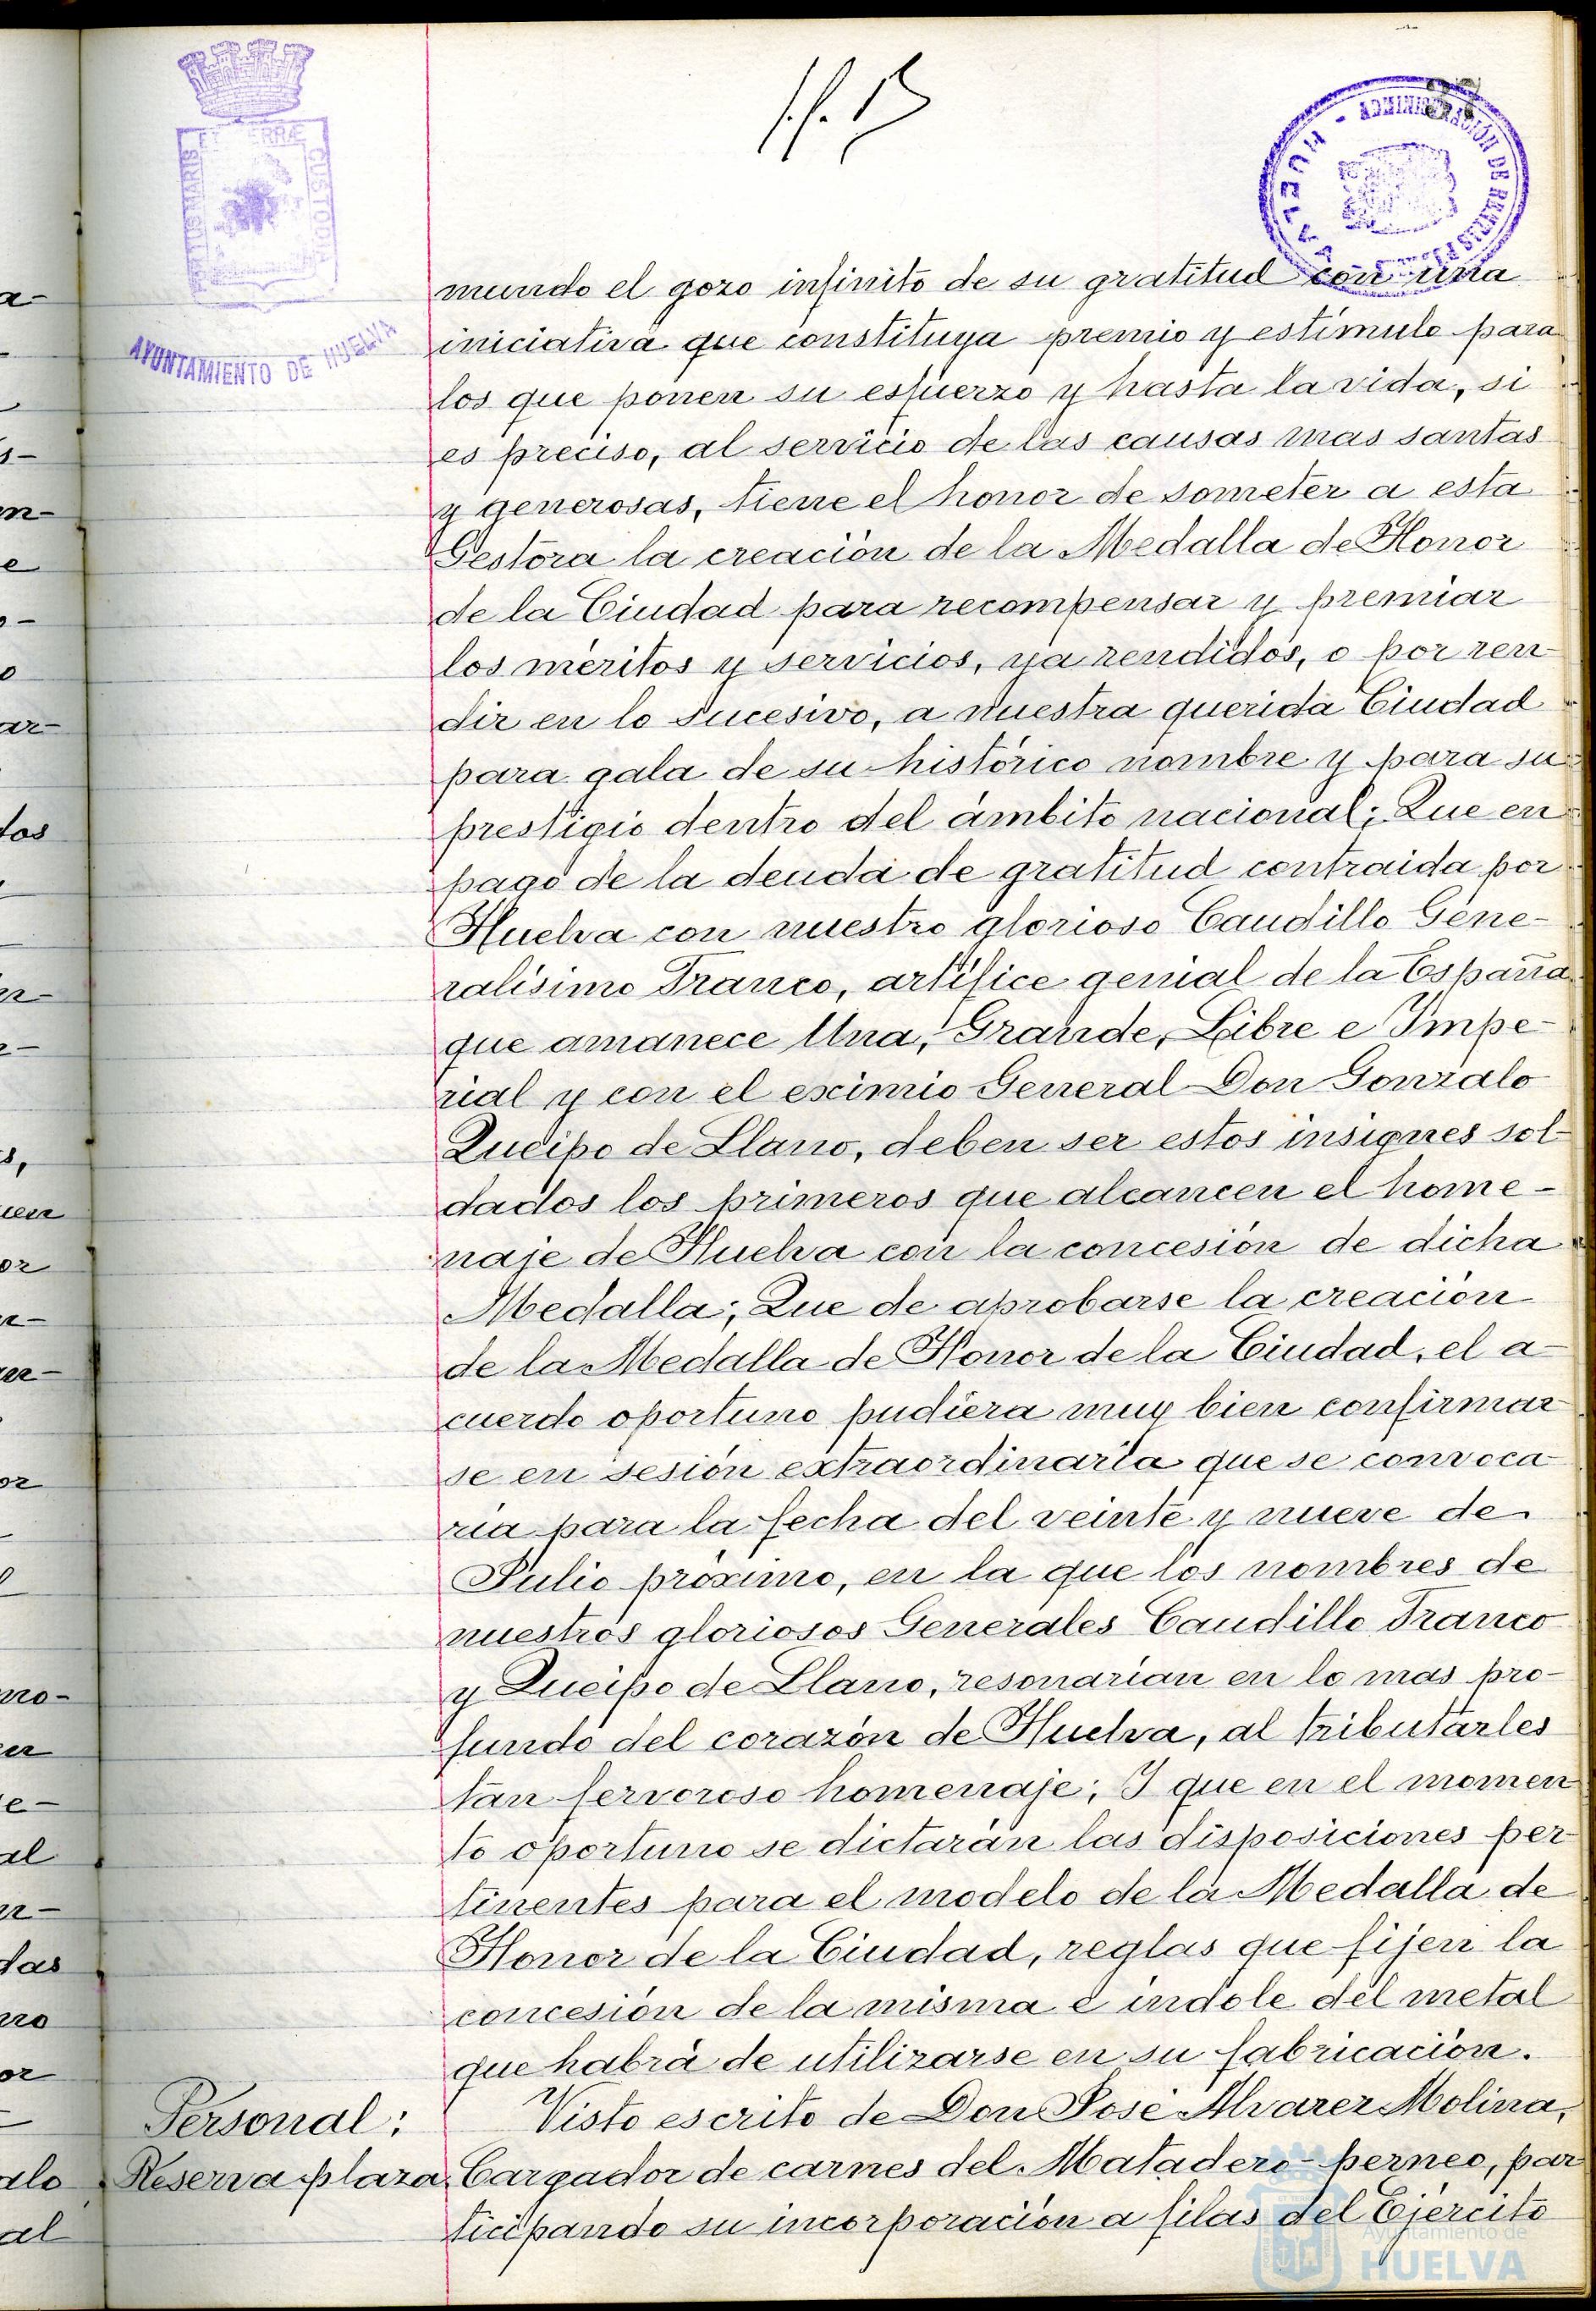 PORTUS MARIS ET TERRÆ CUSTODIA
AYUNTAMIENTO DE HUELVA
37
ADMINISTRACIÓN DE RENTAS
HUELVA
mundo el gozo infinito de su gratitud con una
iniciativa que constituya premio y estímulo para
los que ponen su esfuerzo y hasta la vida, si
es preciso, al servicio de las causas mas santas
y generosas, tiene el honor de someter a esta
Gestora la creación de la Medalla de Honor
de la Ciudad para recompensar y premiar
los méritos y servicios, ya rendidos, o por ren
dir en lo sucesivo, a nuestra querida Ciudad
para gala de su histórico nombre y para su
prestigio dentro del ámbito nacional; Que en
pago de la deuda de gratitud contraida por
Huelva con nuestro glorioso Caudillo Gene-
ralísimo Franco, artífice genial de la España
que amanece Una, Grande, Libre e Impe-
rial y con el eximio General Don Gonzalo
Queipo de Llano, deben ser estos insignes sol-
dados los primeros que alcancen el home-
naje de Huelva con la concesión de dicha
Medalla; Que de aprobarse la creación
de la Medalla de Honor de la Ciudad, el a-
cuerdo oportuno pudiera muy bien confirmar
se en sesión extraordinaria que se convoca
ría para la fecha del veinte y nueve de
Julio próximo, en la que los nombres de
nuestros gloriosos Generales Caudillo Franco
y Queipo de Llano, resonarían en lo mas pro-
fundo del corazón de Huelva, al tributarles
tan fervoroso homenaje; I que en el momen
to oportuno se dictarán las disposiciones per
tinentes para el modelo de la Medalla de
Honor de la Ciudad, reglas que fijen la
concesión de la misma e índole del metal
que habrá de utilizarse en su fabricación.
Personal: Visto escrito de Don José Alvarez Molina,
Reserva plaza Cargador de carnes del Matadero-perneo, par
ticipando su incorporación a filas del Ejército
Ayuntamiento de
HUELVA